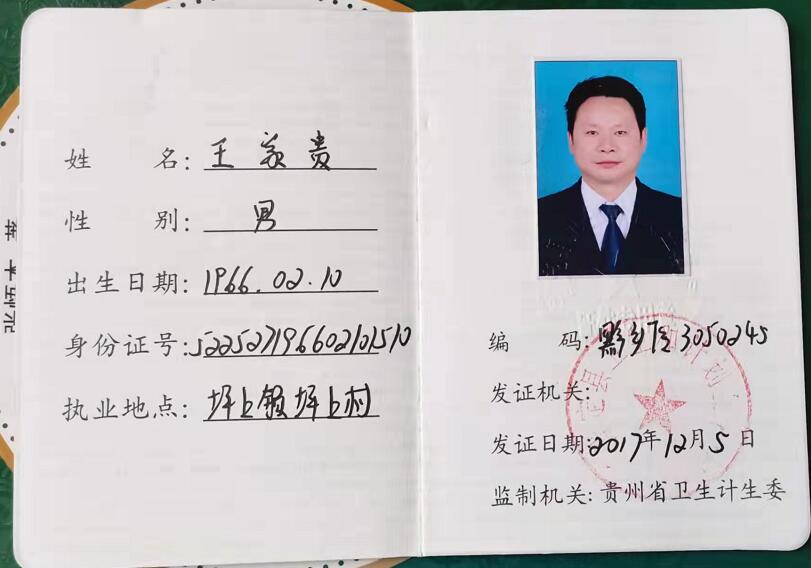 姓名:王义贵
性别:男
出生日期:1966.02.10
身份证号:522527196602101510
执业地点:坪上镇坪上村
编码:黔乡医3050245
发证机关:
发证日期:2017年12月5日
监制机关:贵州省卫生计生委